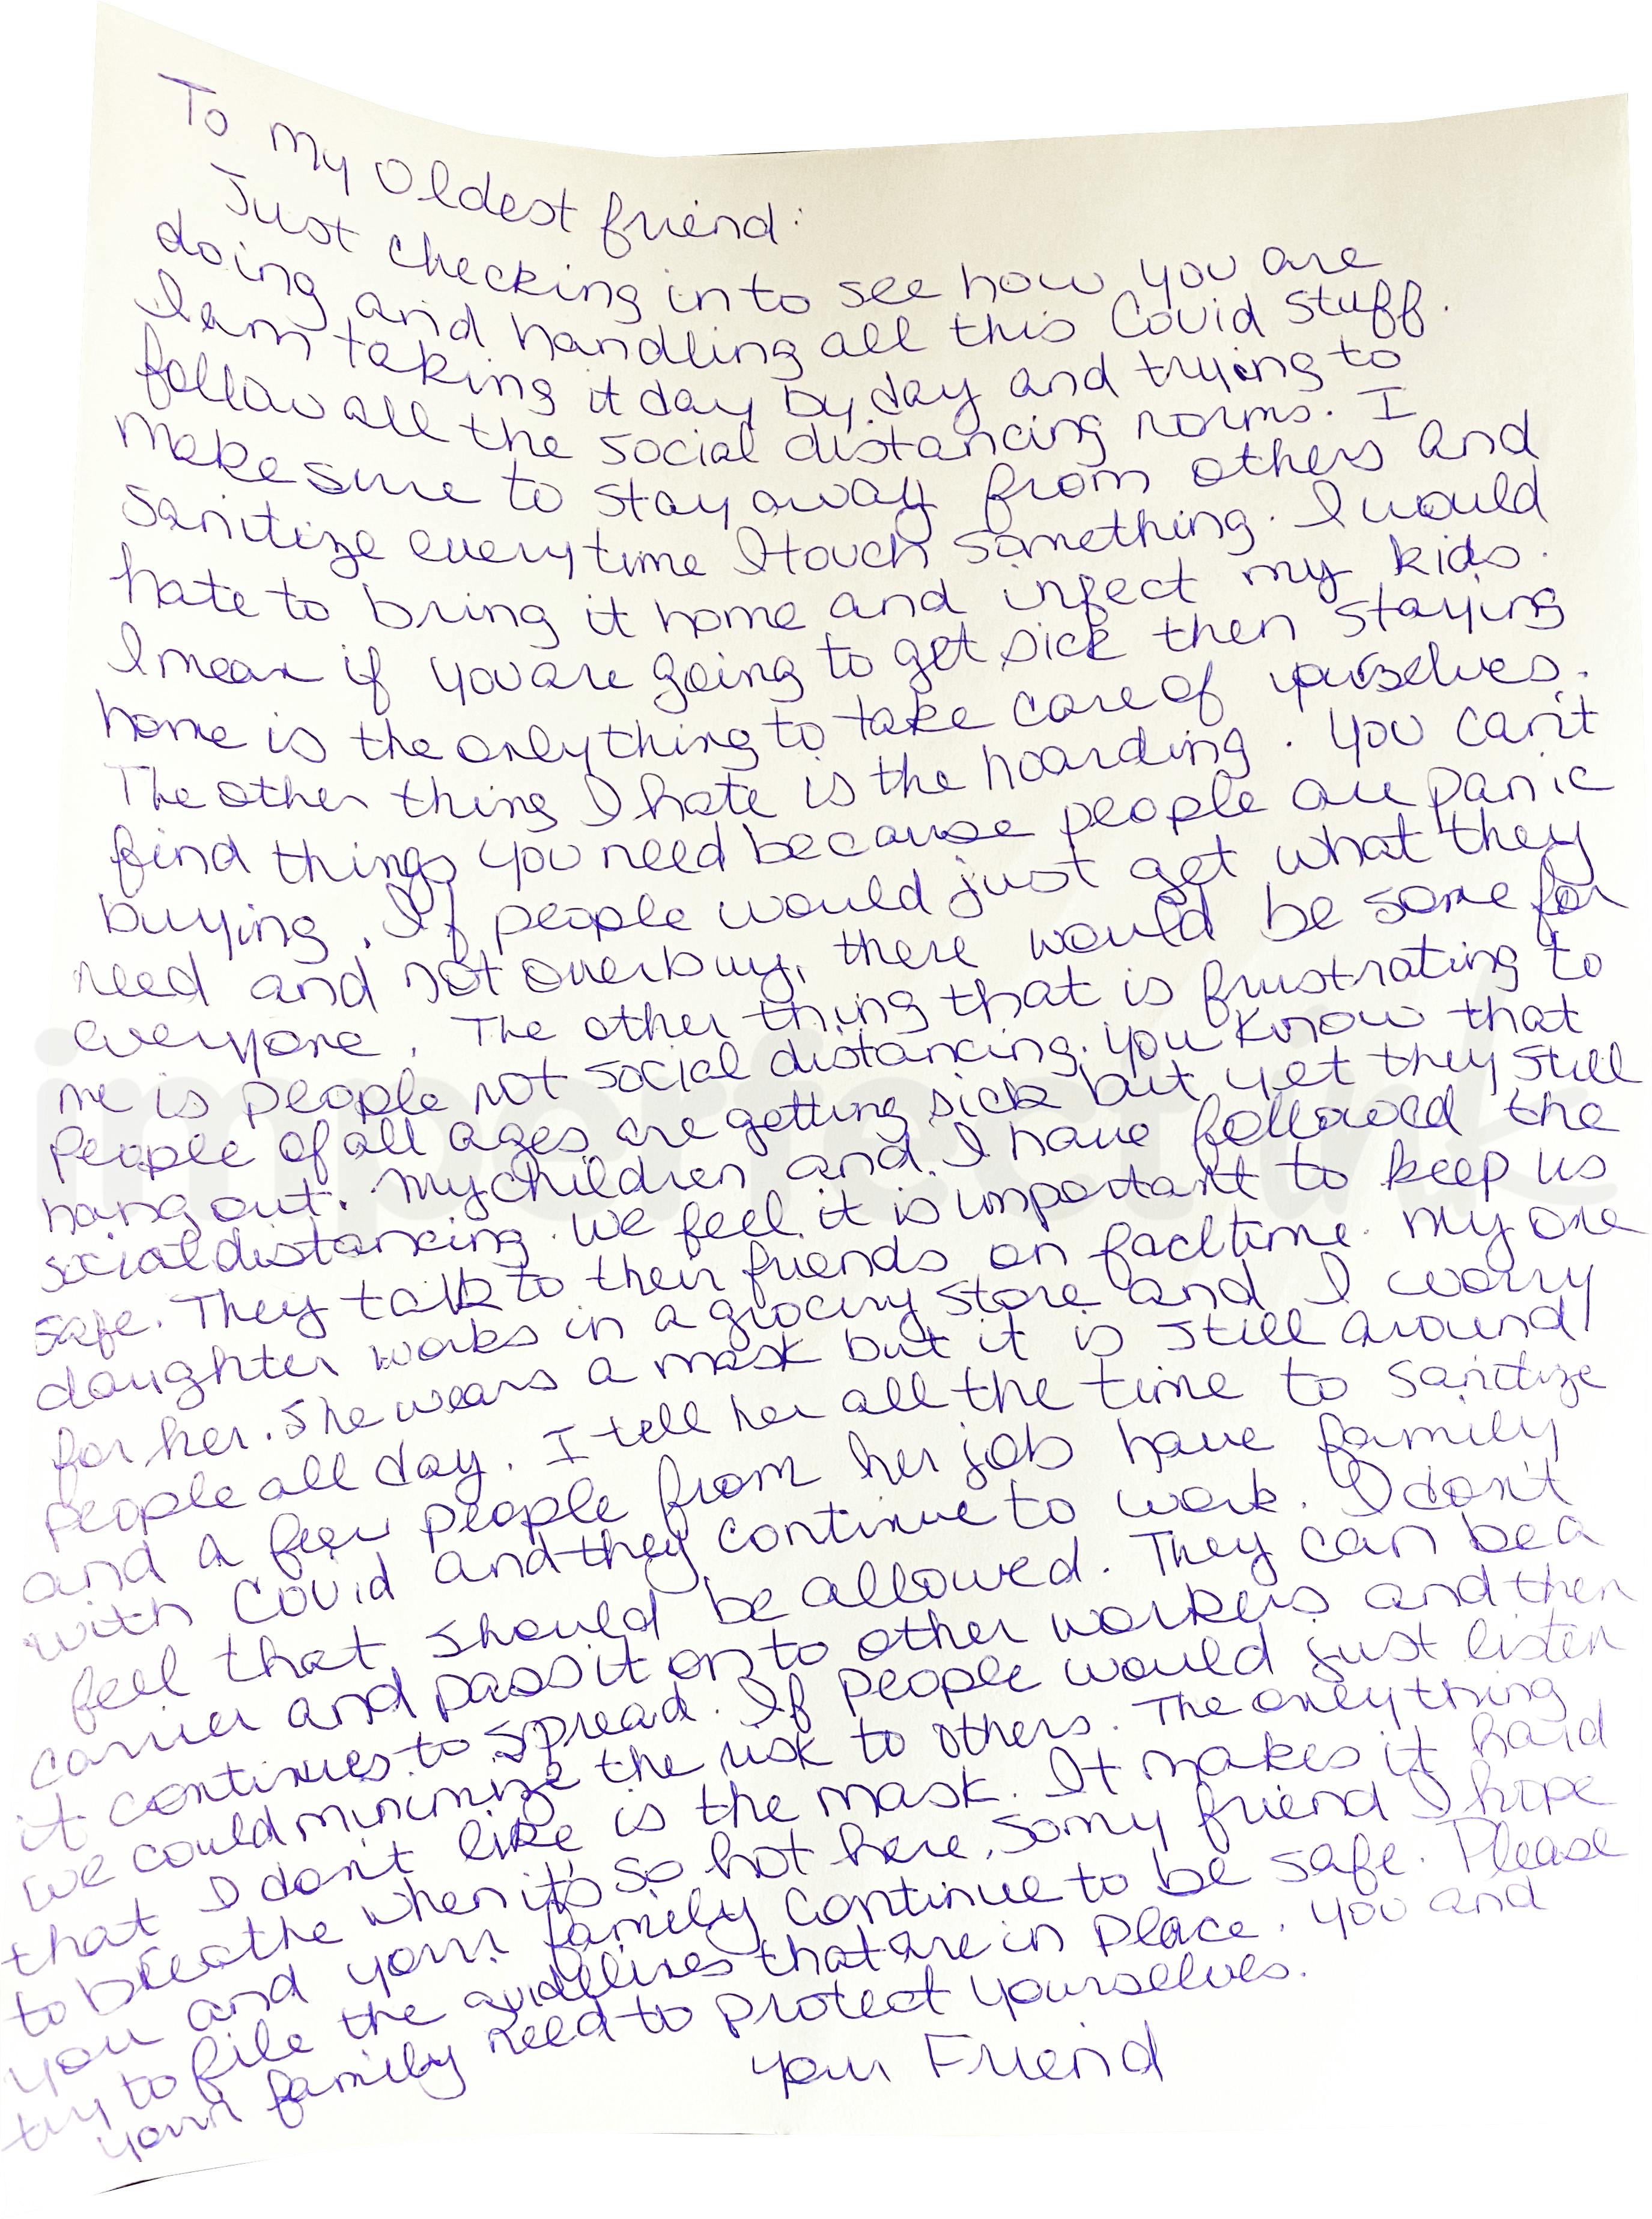 To my Oldest friend:
Just checking in to see how you are
doing and handling all this Covid stuff.
I am taking it day by day and trying to
follow all the social distancing norms. I
make sure to stay away from others and
sanitize every time I touch something. I would
hate to bring it home and infect my kids.
I mean if you are going to get sick then staying
home is the only thing to take care of yourselves.
The other thing I hate is the hoarding. You can't
find things you need because people are panic
buying. If people would just get what they
need and not overbuy, there would be some for
everyone. The other thing that is frustrating to
me is people not social distancing. You know that
people of all ages are getting sick but yet they still
hang out. My children and I have followed the
social distancing. We feel it is important to keep us
safe. They talk to their friends on facetime. My one
daughter works in a grocery store and I worry
for her. She wears a mask but it is still around
people all day. I tell her all the time to sanitize
and a few people from her job have family
with Covid and they continue to work. I don't
feel that should be allowed. They can be a
carrier and pass it on to other workers and then
it continues to spread. If people would just listen
we could minimize the risk to others. The only thing
that I don't like is the mask. It makes it hard
to breathe when it's so hot here. So my friend I hope
you and your family continue to be safe. Please
try to the guidelines that are in place. You and
your family need to protect yourselves.
Your Friend
imperfect ink